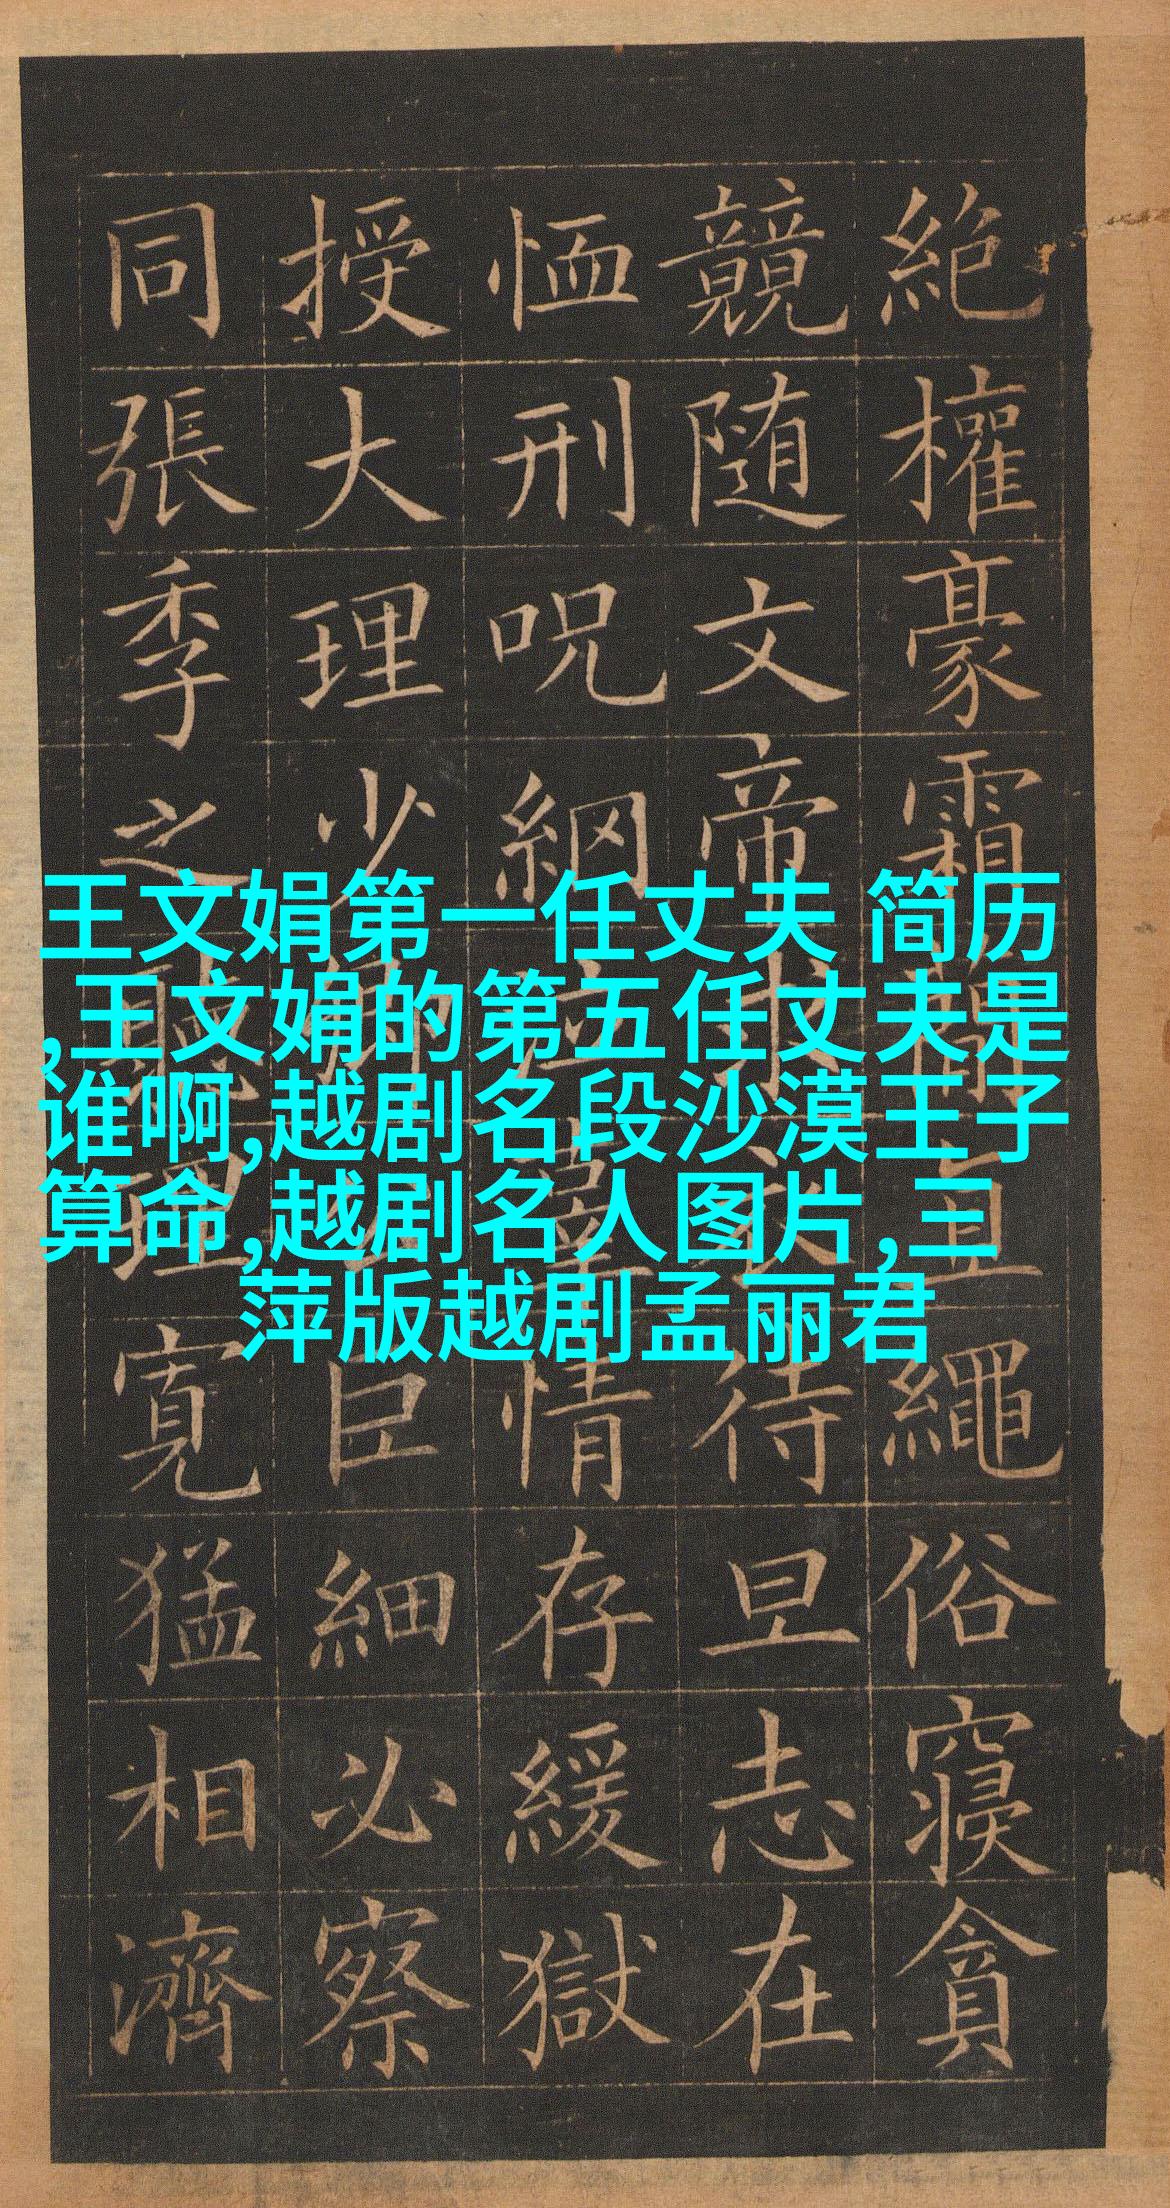 王文娟第一任丈夫 简历
,王文娟的第五任丈夫是
谁啊,越剧名段沙漠王子
算命,越剧名人图片,三
萍版越剧孟丽君
絶權豪霜簡直繩俗寢貪
競随文帝求衣待旦志在
恤刑呪網泣辜情存緩獄
授大理少卿公巨細必察
同張季之聽理寬猛相濟